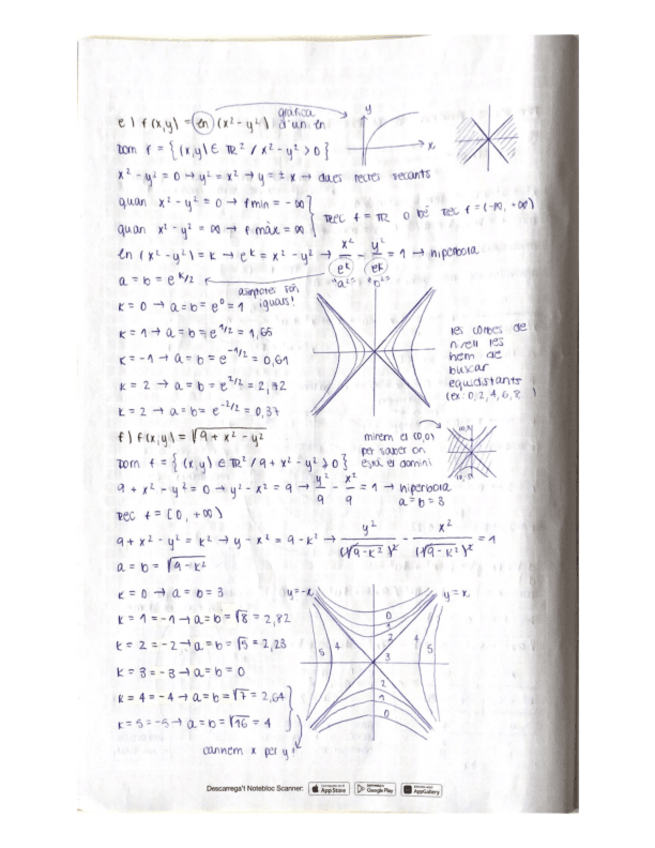 e) f(x,y) = ln (x² - y²) gràfica d'un ln
Dom f = {(x,y) ∈ ℝ² / x² - y² > 0}
x² - y² = 0 → y² = x² → y = ± x → dues rectes secants
quan x² - y² = 0 → f min = -∞
quan x² - y² = ∞ → f màx = ∞
Rec f = ℝ o bé Rec f = (-∞, +∞)
ln (x² - y²) = k → e^k = x² - y² → x²/e^k - y²/e^k = 1 → hiperbola
"a²" "b²"
a = b = e^k/2
asimptotes són iguals!
k = 0 → a = b = e⁰ = 1
k = 1 → a = b = e^1/2 = 1,65
k = -1 → a = b = e^-1/2 = 0,61
k = 2 → a = b = e^2/2 = 2,72
k = 2 → a = b = e^-2/2 = 0,37
les corbes de
nivell les
hem de
buscar
equidistants
(ex: 0,2,4,6,8 )
f) f(x,y) = √9 + x² - y²
Dom f = {(x,y) ∈ ℝ² / 9 + x² - y² ≥ 0}
mirem el (0,0)
per saber on
està el domini
9 + x² - y² = 0 → y² - x² = 9 → y²/9 - x²/9 = 1 → hiperbola
a = b = 3
Rec f = [0, +∞)
9 + x² - y² = k² → y - x² = 9 - k² → y²/(√9-k²)² - x²/(√9-k²)² = 1
a = b = √9-k²
k = 0 → a = b = 3
k = 1 = -1 → a = b = √8 = 2,82
k = 2 = -2 → a = b = √5 = 2,23
k = 3 = -3 → a = b = 0
k = 4 = -4 → a = b = √7 = 2,64
k = 5 = -5 → a = b = √16 = 4
canviem x per y!
y = -x
y = x
0
1
2
3
5 4
4 5
2
1
0
Descarrega't Notebloc Scanner:
App Store
Google Play
AppGallery